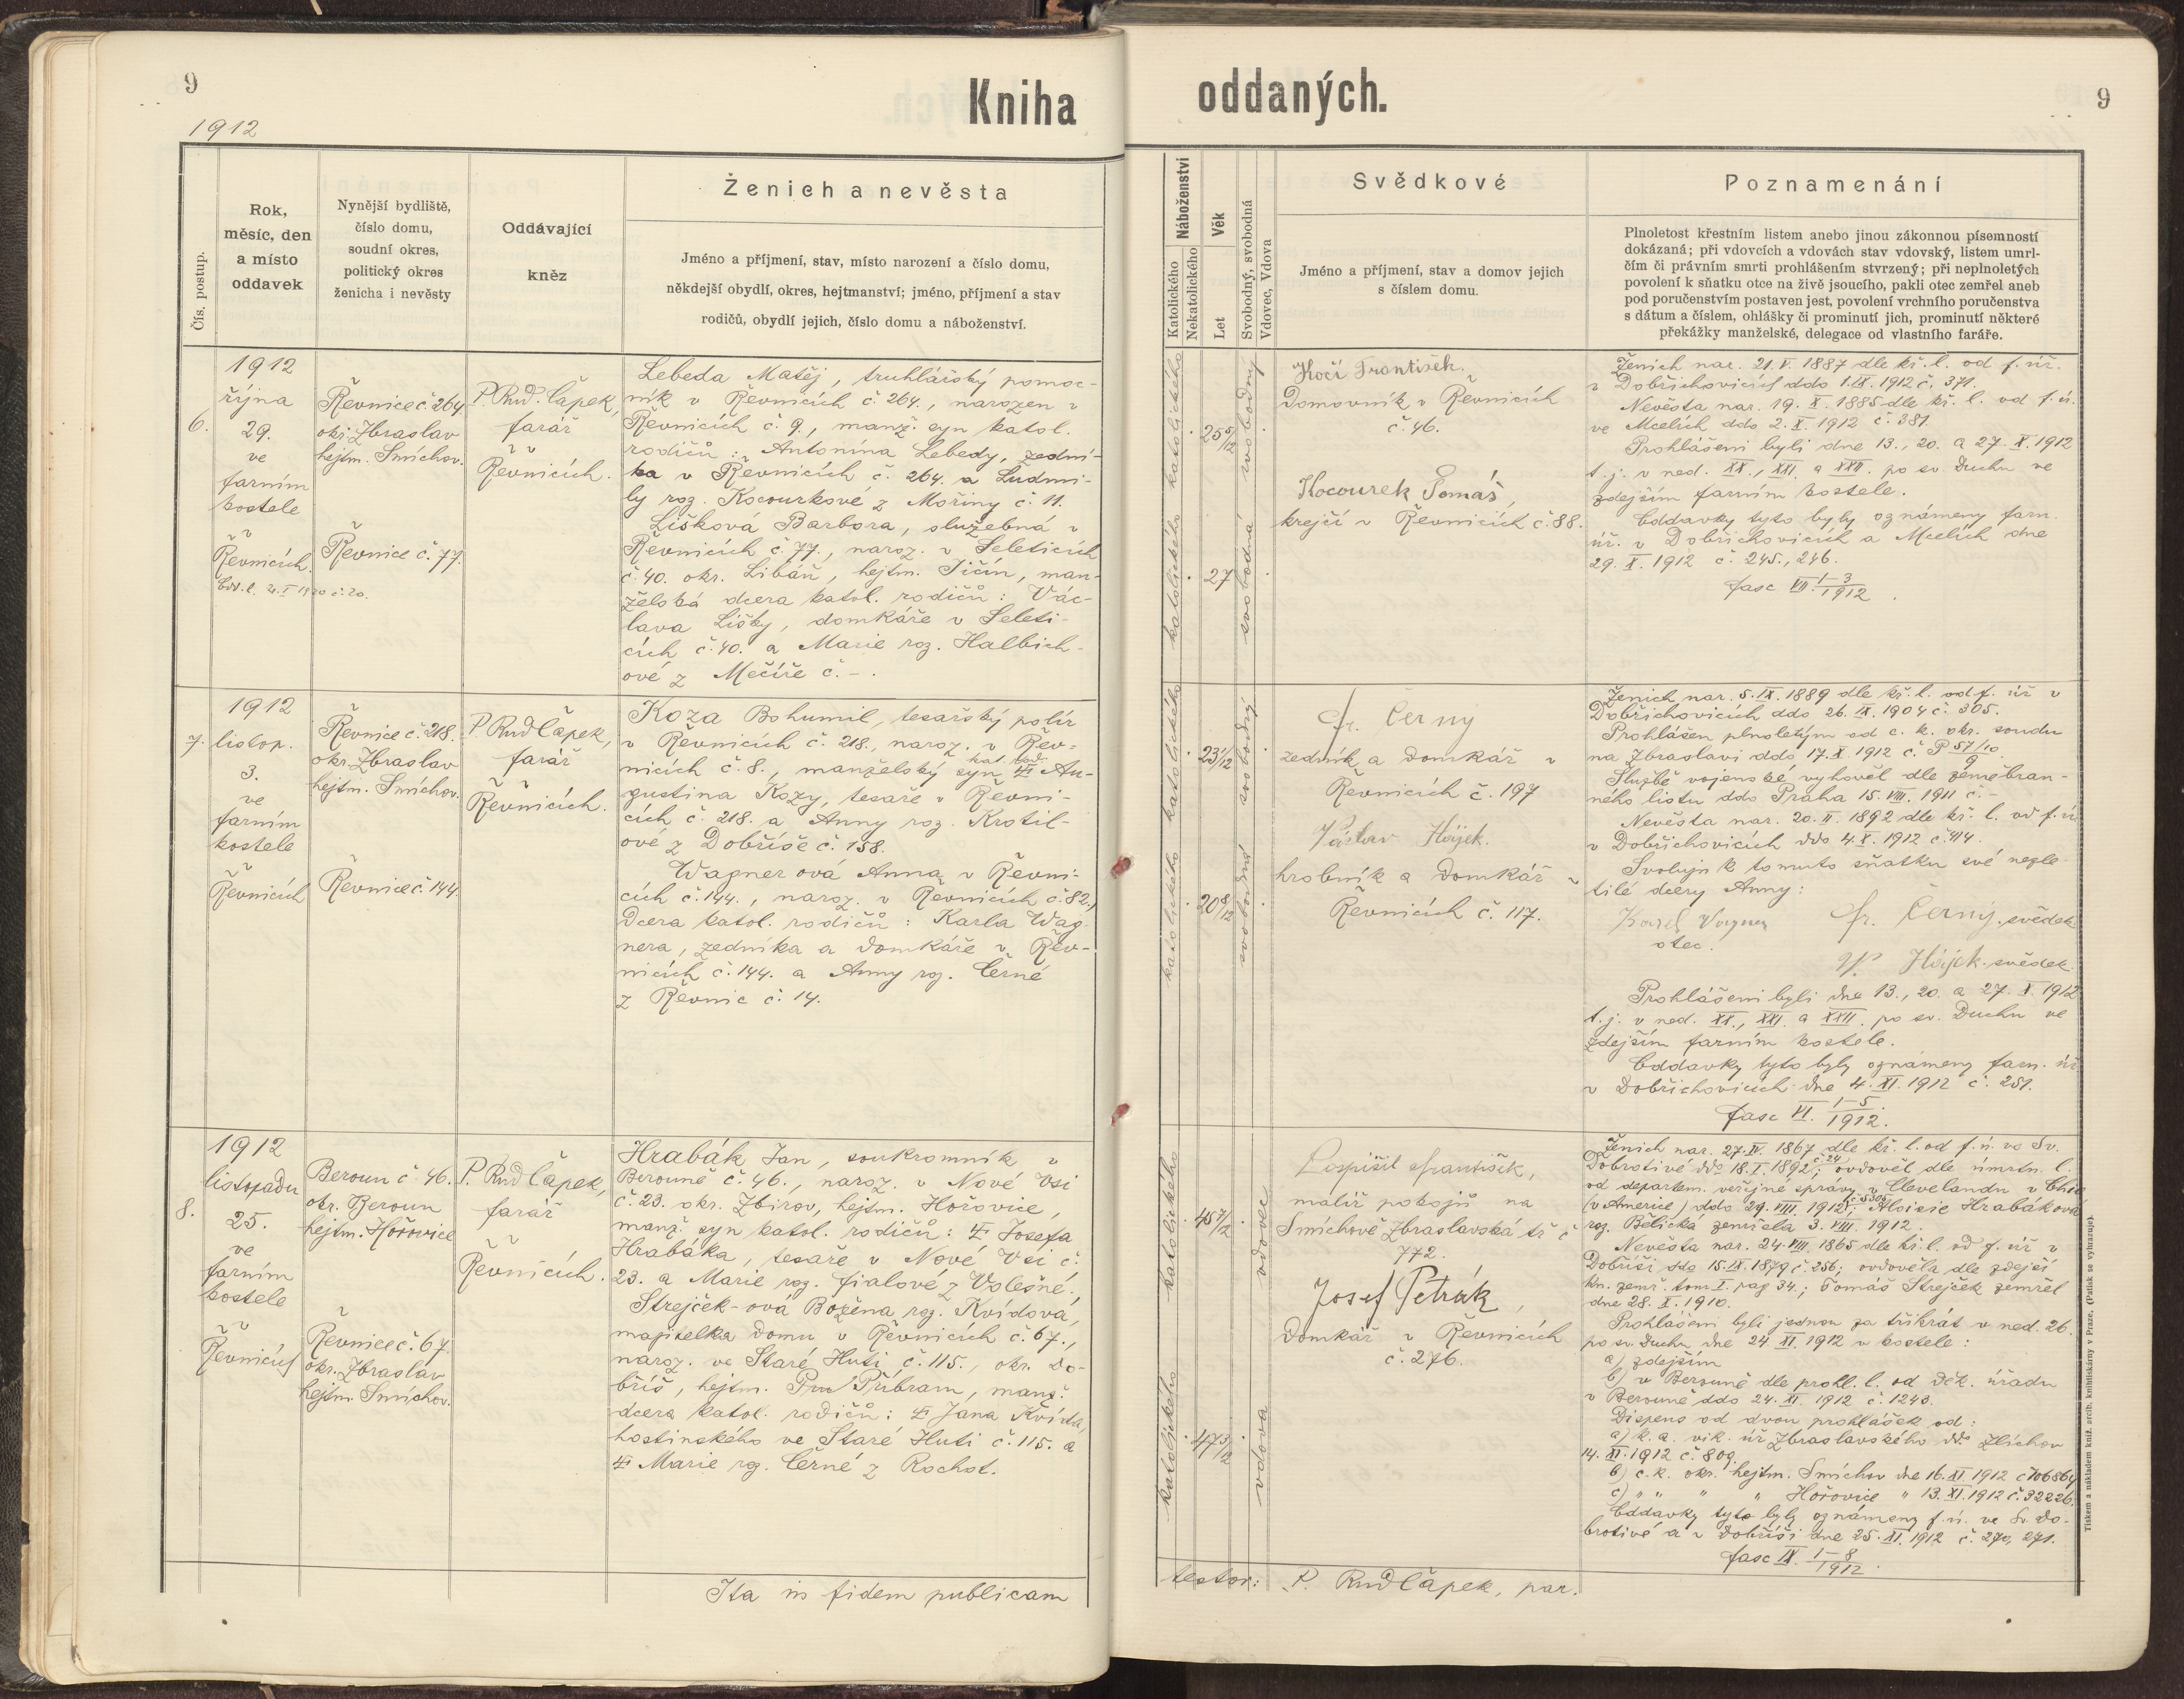 9
1912
Kniha
Čís. postup.
Rok,
měsíc, den
a místo
oddavek
Nynější bydliště,
číslo domu,
soudní okres,
politický okres
ženicha i nevěsty
Oddávající
kněz
Ženich a nevěsta
Jméno a příjmení, stav, místo narození a číslo domu,
někdejší obydlí, okres, hejtmanství; jméno, příjmení a stav
rodičů, obydlí jejich, číslo domu a náboženství.
6.
1912
října
29.
ve
farním
kostele
v
Řevnicích.
Odd. l. 2. I 1920 č. 20.
Řevnice č. 264
okr. Zbraslav
hejtm. Smíchov.
Řevnice č. 77.
P. Rud. Čapek,
farář
v
Řevnicích.
Lebeda Matěj, truhlářský pomoc-
ník v Řevnicích č. 264., narozen v
Řevnicích č. 9., manž. syn katol.
rodičů: Antonína Lebedy, zední-
ka v Řevnicích č. 264. a Ludmi-
ly roz. Kocourkové z Mořiny č. 11.
Lišková Barbora, služebná v
Řevnicích č. 77., naroz. v Seleticích
č. 40. okr. Libáň, hejtm. Jičín, man-
želská dcera katol. rodičů: Vác-
lava Lišky, domkáře v Seleti-
cích č. 40. a Marie roz. Halbich-
ové z Mečíře č. -.
7.
1912
listop.
3.
ve
farním
kostele
v
Řevnicích
Řevnice č. 218.
okr. Zbraslav
hejtm. Smíchov.
Řevnice č. 144.
P. Rud Čapek,
farář
v
Řevnicích.
Koza Bohumil, tesařský polír
v Řevnicích č. 218., naroz. v Řev-
kat. rod.
nicích č. 8., manželský syn Au-
gustina Kozy, tesaře v Řevni-
cích č. 218. a Anny roz. Krotil-
ové z Dobříše č. 158.
Wagner ová Anna v Řevni-
cích č. 144., naroz. v Řevnicích č. 82.,
dcera katol. rodičů: Karla Wag-
nera, zedníka a domkáře v Řev-
nicích č. 144. a Anny roz. Černé
z Řevnic č. 14.
8.
1912
listopadu
25.
ve
farním
kostele
v
Řevnicích
Beroun č. 46.
okr. Beroun
hejtm. Hořovice
Řevnice č. 67.
okr. Zbraslav
hejtm. Smíchov.
P. Rud Čapek,
farář
v
Řevnicích.
Hrabák Jan, soukromník v
Berouně č. 46., naroz. v Nové Vsi
č. 23. okr. Zbirov, hejtm. Hořovice,
manž. syn katol. rodičů: Josefa
Hrabáka, tesaře v Nové Vsi č.
23. a Marie roz. Fialové z Volešné.
Strejček-ová Božena roz. Kvídová,
majitelka domu v Řevnicích č. 67.,
naroz. ve Staré Huti č. 115., okr. Do-
bříš, hejtm. Příbram, manž.
dcera katol. rodičů: Jana Kvída,
hostinského ve Staré Huti č. 115. a
Marie roz. Černé z Rochot.
Ita in fidem publicam
oddaných.
9
Náboženství
Katolického
Nekatolického
Věk
Let
Svobodný, svobodná
Vdovec, Vdova
Svědkové
Jméno a příjmení, stav a domov jejich
s číslem domu.
Poznamenání
Plnoletost křestním listem anebo jinou zákonnou písemností
dokázaná; při vdovcích a vdovách stav vdovský, listem umrl-
čím či právním smrti prohlášením stvrzený; při neplnoletých
povolení k sňatku otce na živě jsoucího, pakli otec zemřel aneb
pod poručenstvím postaven jest, povolení vrchního poručenstva
s dátum a číslem, ohlášky či prominutí jich, prominutí některé
překážky manželské, delegace od vlastního faráře.
katolického
katolického
25 5/12
27
svobodný
svobodná
Kočí František.
Domovník v Řevnicích
č. 46.
Kocourek Tomáš,
krejčí v Řevnicích č. 88.
Ženich nar. 21. V. 1887 dle kř. l. od f. úř.
v Dobřichovicích ddo 1. IX. 1912 č. 371.
Nevěsta nar. 19. X. 1885 dle kř. l. od f. ú.
ve Mcelích ddo 2. X. 1912 č. 381.
Prohlášeni byli dne 13., 20. a 27. X. 1912
t. j. v ned. XX., XXI. a XXII. po sv. Duchu ve
zdejším farním kostele.
Oddavky tyto byly oznámeny farn.
úř. v Dobřichovicích a Mcelích dne
29. X. 1912 č. 245., 246.
Fasc VII. 1-3/1912.
katolického
katolického
23 1/12
20 8/12
svobodný
svobodná
Fr. Černý
zedník a domkář v
Řevnicích č. 197
Václav Hájek.
hrobník a domkář v
Řevnicích č. 117.
Ženich nar. 5. IX. 1889 dle kř. l. od f. úř v
Dobřichovicích ddo 26. IX. 1904 č. 305.
Prohlášen plnoletým od c. k. okr. soudu
na Zbraslavi ddo 17. X. 1912 č. P 57/10
9
Službě vojenské vyhověl dle zeměbran-
ného listu ddo Praha 15. VIII. 1911 č. -
Nevěsta nar. 20. II. 1892 dle kř. l. od f. ú
v Dobřichovicích ddo 4. X. 1912 č. 414.
Svoluji k tomuto sňatku své nezle-
tilé dcery Anny:
Karel Wagner
otec.
Fr. Černý. svědek
V. Hájek. svědek.
Prohlášeni byli dne 13., 20. a 27. X. 1912
t. j. v ned. XX., XXI. a XXII. po sv. Duchu ve
zdejším farním kostele.
Oddavky tyto byly oznámeny farn. úř
v Dobřichovicích dne 4. XI. 1912 č. 251.
Fasc VI. 1-5/1912.
katolického
katolického
45 7/12
47 3/12
vdovec
vdova
Pospíšil František,
malíř pokojů na
Smíchově Zbraslavská tř č
772.
Josef Petrák,
domkář v Řevnicích
č. 276.
Ženich nar. 27. IV. 1867 dle kř. l. od f. ú. ve Sv.
Dobrotivé ddo 18. I. 1892 č. 24; ovdověl dle úmrtn. l.
od departem. veřejné správy v Clevelandu v Ohio
(v Americe) ddo 29. VIII. 1912; Aloisie Hrabáková
roz. Bělická zemřela 3. VIII. 1912.
Nevěsta nar. 24. VIII. 1865 dle kř. l. od f. úř v
Dobříši ddo 15. IX. 1879 č. 256; ovdověla dle zdejší
kn. zemř. tom I. pag 34.; Tomáš Strejček zemřel
dne 28. X. 1910.
Prohlášeni byli jednou za třikrát v ned. 26.
po sv. Duchu dne 24. XI. 1912 v kostele:
a) zdejším
b) v Berouně dle prohl. l. od děk. úřadu
v Berouně ddo 24. XI. 1912 č. 1243.
Dispens od dvou prohlášek od:
a) k. a. vik. úř Zbraslavského ddo Zlíchov
14. XI. 1912 č. 809.
b) c. k. okr. hejtm. Smíchov dne 16. XI. 1912 č 106864
c) " " " " Hořovice " 13. XI. 1912 č. 32226.
Oddavky tyto byly oznámeny f. ú. ve Sv. Do-
brotivé a v Dobříši dne 25. XI. 1912 č. 270, 271.
Fasc IX. 1-8/1912.
testor: P. Rud Čapek, par.
Tiskem a nákladem kníž. arcib. knihtiskárny v Praze. (Patisk se vyhrazuje).